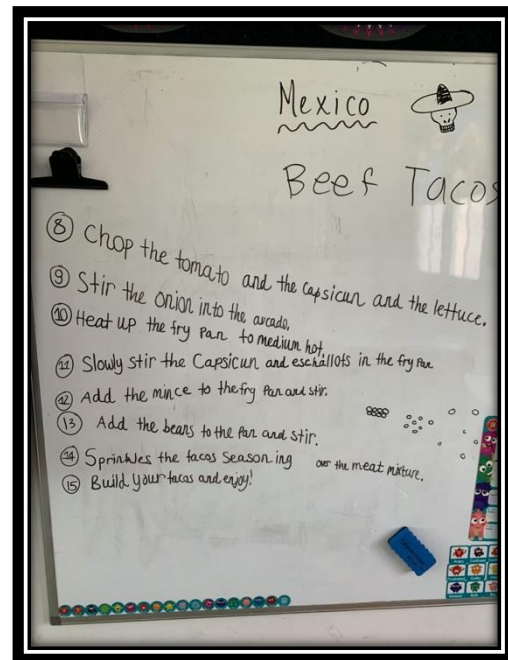 Mexico
Beef Tacos
8 Chop the tomato and the Capsicun and the lettuce.
9 Stir the onion into the avcado.
10 Heat up the fry Pan to medium hot
11 Slowly stir the Capsicun and eschallots in the fry Pan
12 Add the mince to the fry Pan and stir.
13 Add the beans to the Pan and stir.
14 Sprinkles the tacos Seasoning over the meat mixture.
15 Build your tacos and enjoy!